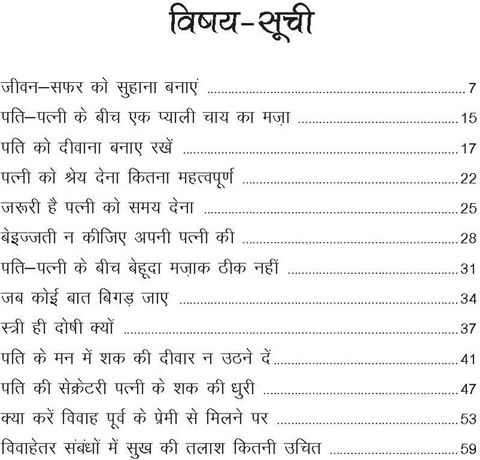 विषय-सूची
जीवन–सफर को सुहाना बनाएं ........ 7
पति–पत्नी के बीच एक प्याली चाय का मज़ा ........ 15
पति को दीवाना बनाए रखें ........ 17
पत्नी को श्रेय देना कितना महत्वपूर्ण ........ 22
जरूरी है पत्नी को समय देना ........ 25
बेइज्जती न कीजिए अपनी पत्नी की ........ 28
पति–पत्नी के बीच बेहूदा मज़ाक ठीक नहीं ........ 31
जब कोई बात बिगड़ जाए ........ 34
स्त्री ही दोषी क्यों ........ 37
पति के मन में शक की दीवार न उठने दें ........ 41
पति की सेक्रेटरी पत्नी के शक की धुरी ........ 47
क्या करें विवाह पूर्व के प्रेमी से मिलने पर ........ 53
विवाहेतर संबंधों में सुख की तलाश कितनी उचित ........ 59